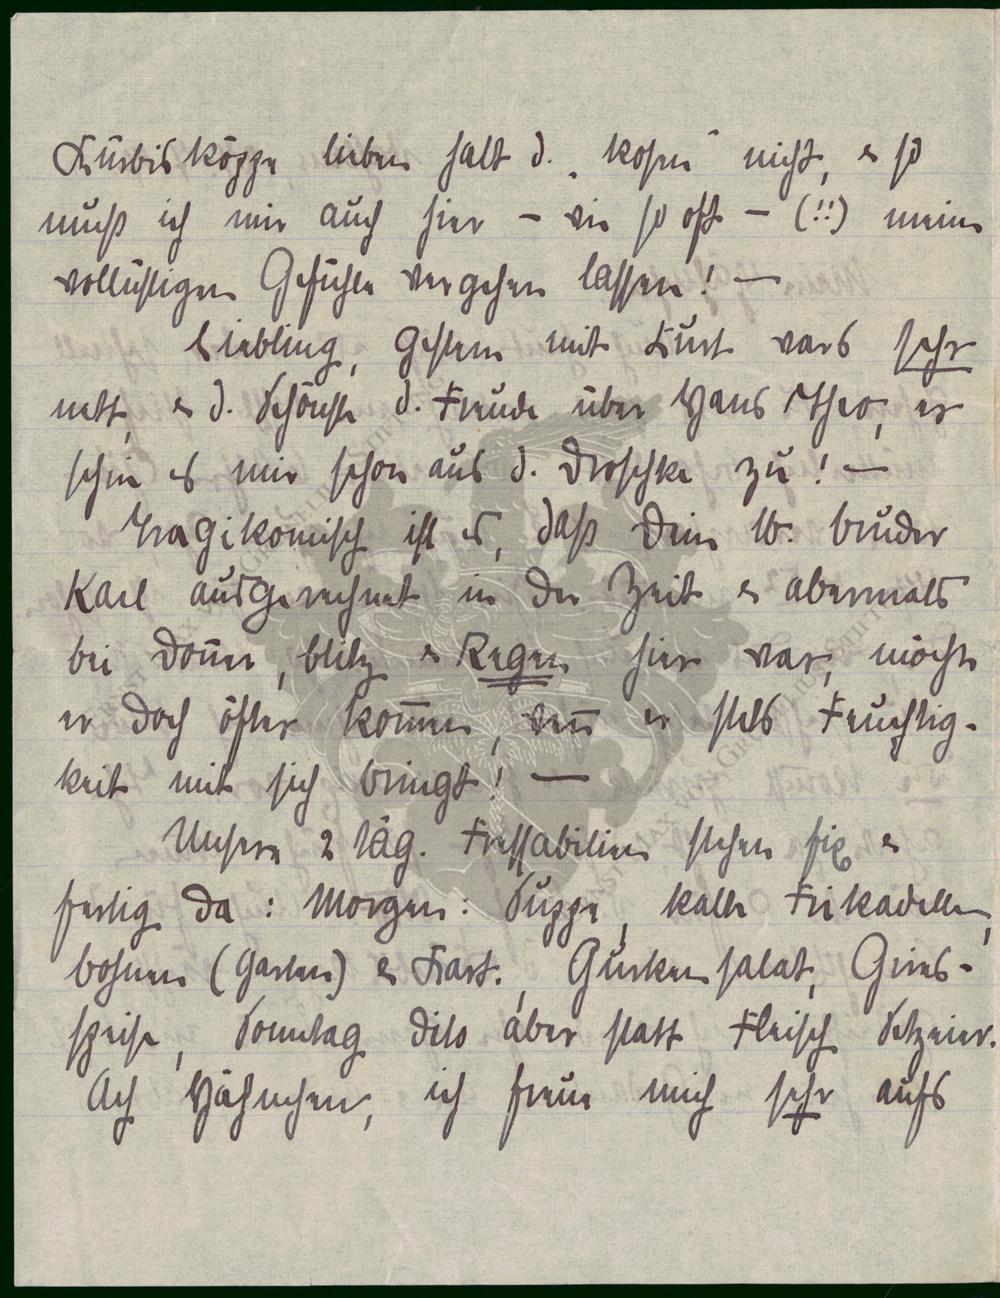 Kürbisköppe lieben halt d. „kosen“ nicht, & so
muß ich mir auch hier – wie so oft – (!!) meine
wollüstigen Gefühle vergehen lassen! —
Liebling, gestern mit Kurt wars sehr
nett, & d. Schönste d. Freude über Hans Theo, er
schrie es mir schon aus d. Droschke zu! —
Tragikomisch ist es, daß Dein lb. Bruder
Karl ausgerechnet in der Zeit & abermals
bei Donner, Blitz & Regen hier war, möchte
er doch öfter kom̄en, wen̄ er stets Feuchtig-
keit mit sich bringt! —
Unsere 2 täg. Fressabilien stehen fix &
fertig da: Morgen: Suppe, kalte Frikadellen,
Bohnen (Garten) & Kart., Gurkensalat, Gries-
speise, Sonntag dito aber statt Fleisch Setzeier.
Ach Hähnchen, ich freue mich sehr aufs